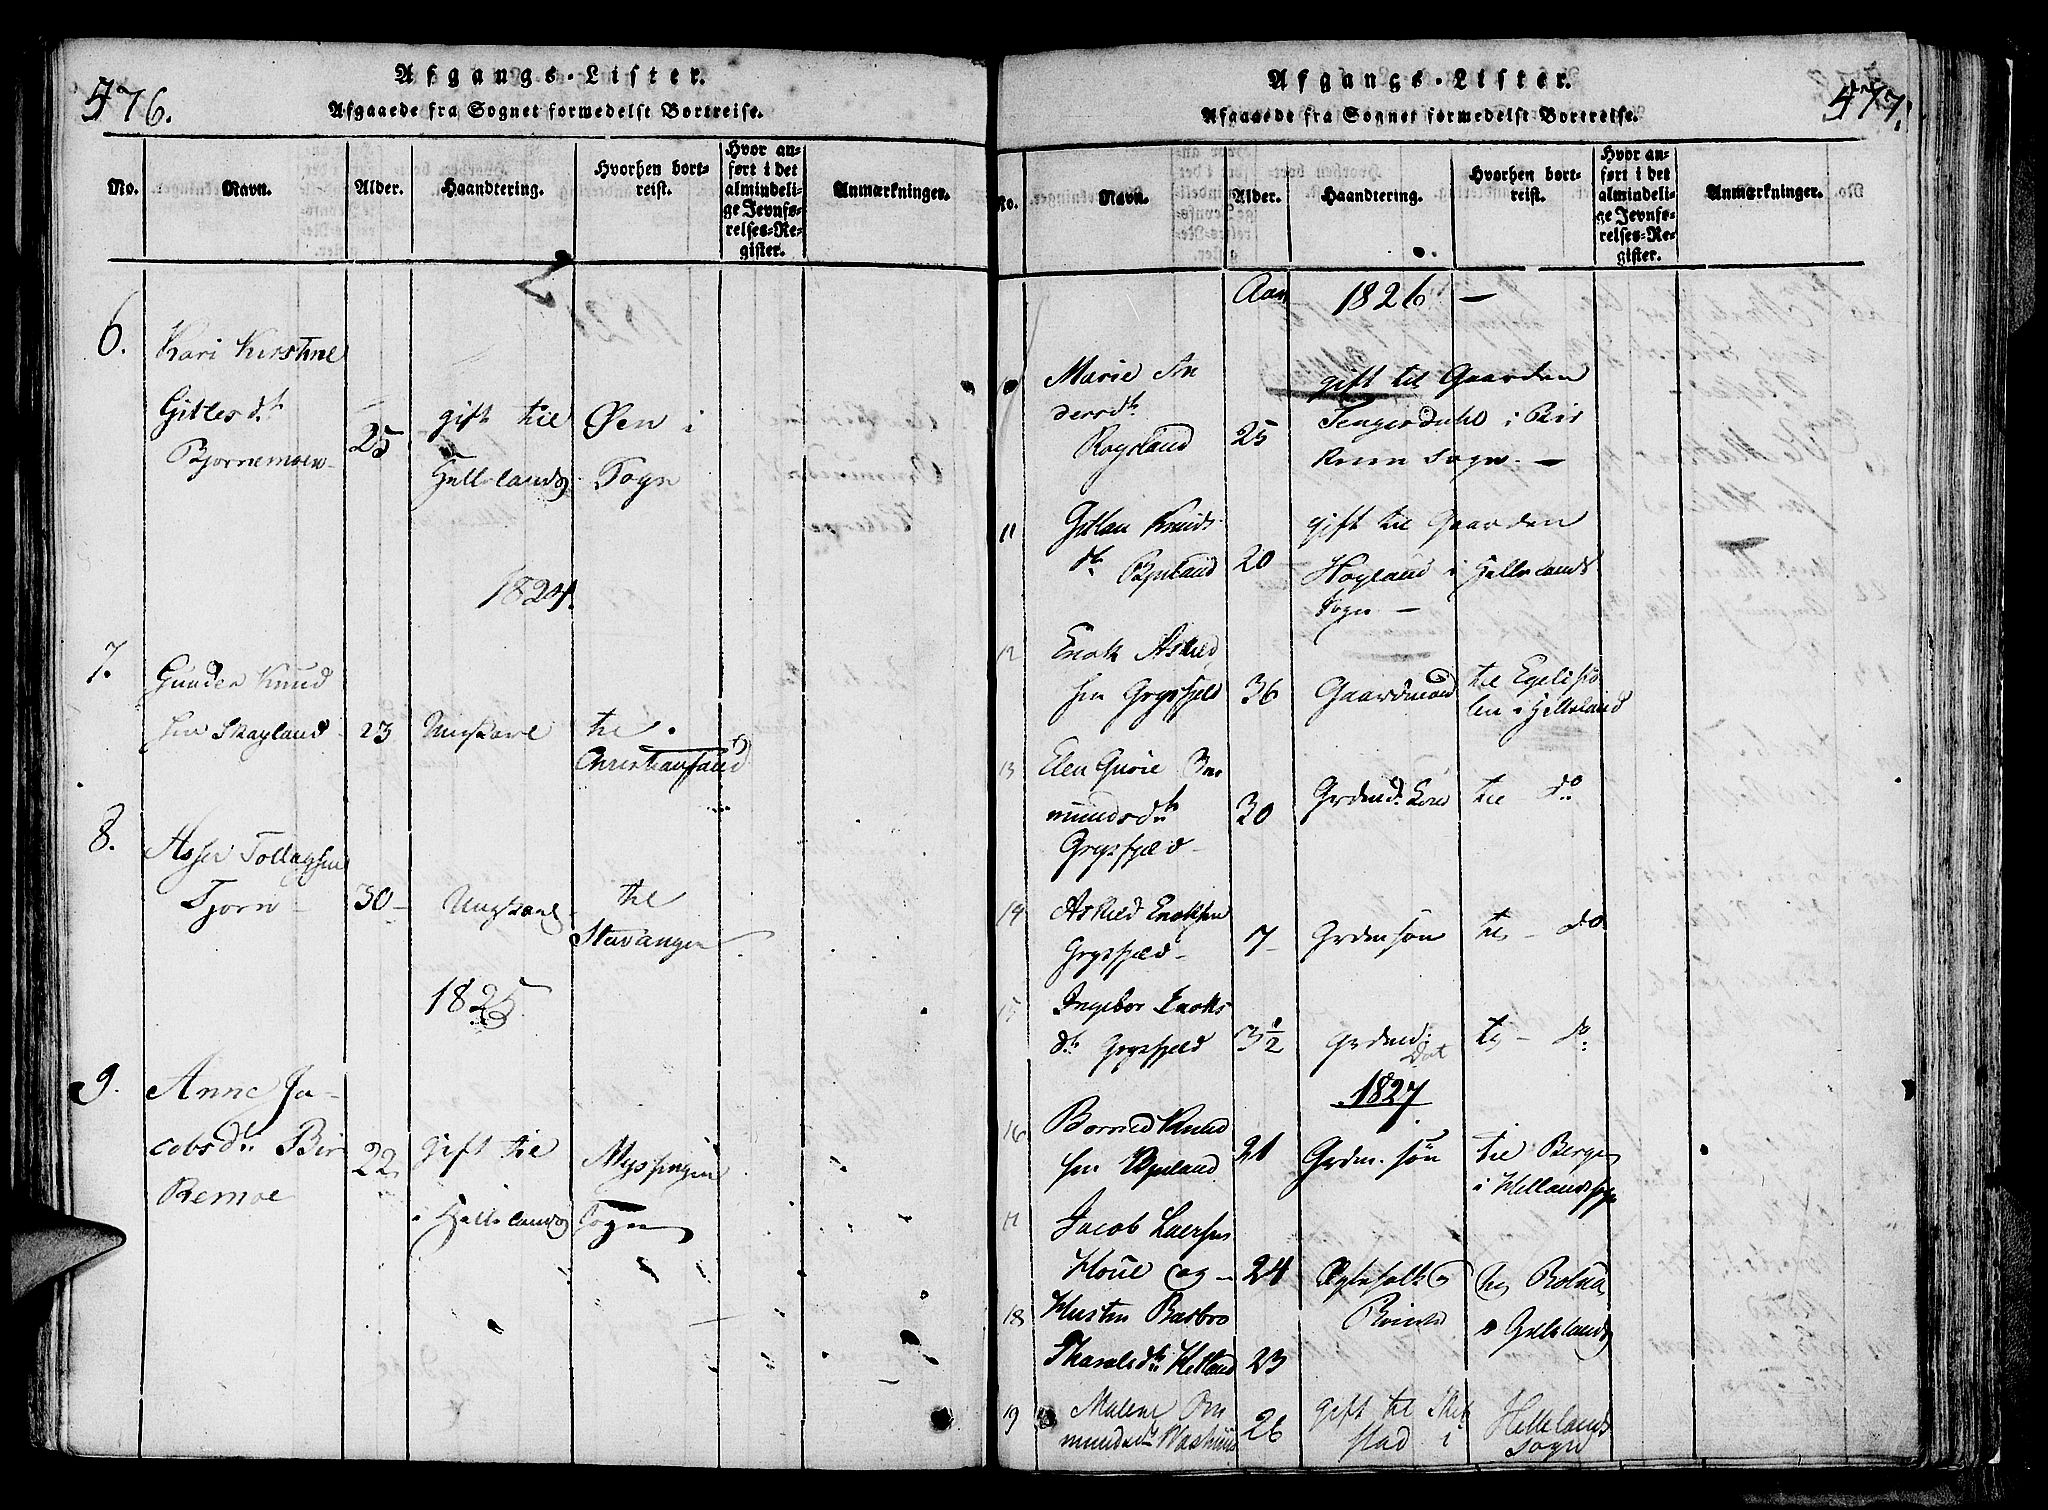 576.
Afgangs-Lister.
Afgaaede fra Sognet formedelst Bortreise.
No.
Navn.
Alder.
Haandtering.
Hvorhen bort-
reist.
Hvor an-
ført i det
almindeli-
ge Jevnfø-
relses-Re-
gister.
Anmærkninger.
6.
Kari Kirstine
Gitlesdtr
Bjørnemoen
25
gift til Øen i
Hellelands Sogn
1824.
7.
Gunder Knud
sen Skayland
23
Ungkarl
til
Christiansand
8.
Asser Tollagsen
Tjørn
30
Ungkarl
til
Stavanger
1825.
9.
Anne Ja-
cobsdtr Bir
Remoe
22
gift til Myssingen
i Hellelands Sogn
577.
Afgangs-Lister.
Afgaaede fra Sognet formedelst Bortreise.
No.
Navn.
Alder.
Haandtering.
Hvorhen bort-
reist.
Hvor an-
ført i det
almindeli-
ge Jevnfø-
relses-Re-
gister.
Anmærkninger.
Aar 1826 —
Marie An
dersdtr
Røysland
25
gift til Gaarden
Tengesdahl i Bir
Krem Sogn —
11
Gitlau Knuds
dtr Øpeland
20
gift til Gaarden
Høyland i Hellelands
Sogn —
12
Enok Askild
sen Grysfjeld
36
Gaardmand
til Egelistø
len i Helleland
13
Elen Gurie
mundsdtr
Grysfjeld
30
Grdmds Kone
til do
14
Askild Enoksen
Grysfjeld
7
Grdmsøn
til do
15
Ingebor Enoks
dtr Grysfjeld
3½
Grdmds
Dat
til do
1827
16
Borrild Knud
sen Øpeland
21
Grdm. søn
til Berge
i Hellands sogn
17
Jacob Laersen
Houe og
24
Ægtefolk
til
i Hellelands
18
Kirsten Barbro
Tharalsdtr Hetland
23
19
Malene Om
mundsdtr
26
gift til
stad i
Hellelands
Sogn